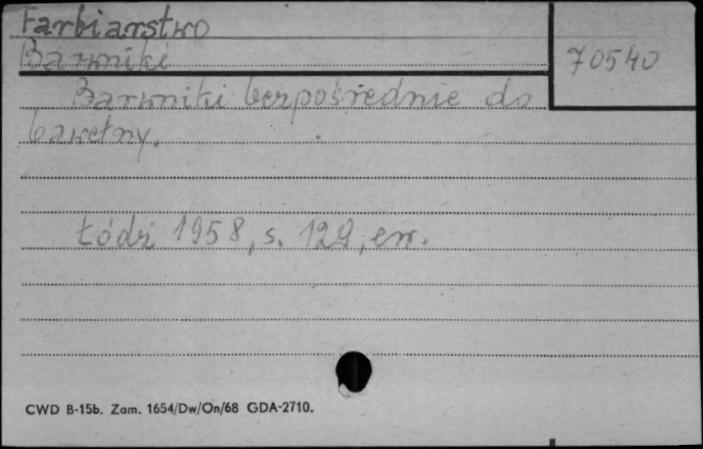 Farbiarstwo
Barwniki
70540
Barwniki bezpośrednie do
bawełny.
Łódź 1958, s. 129, err.
CWD B-15b. Zam. 1654/Dw/On/68 GDA-2710.